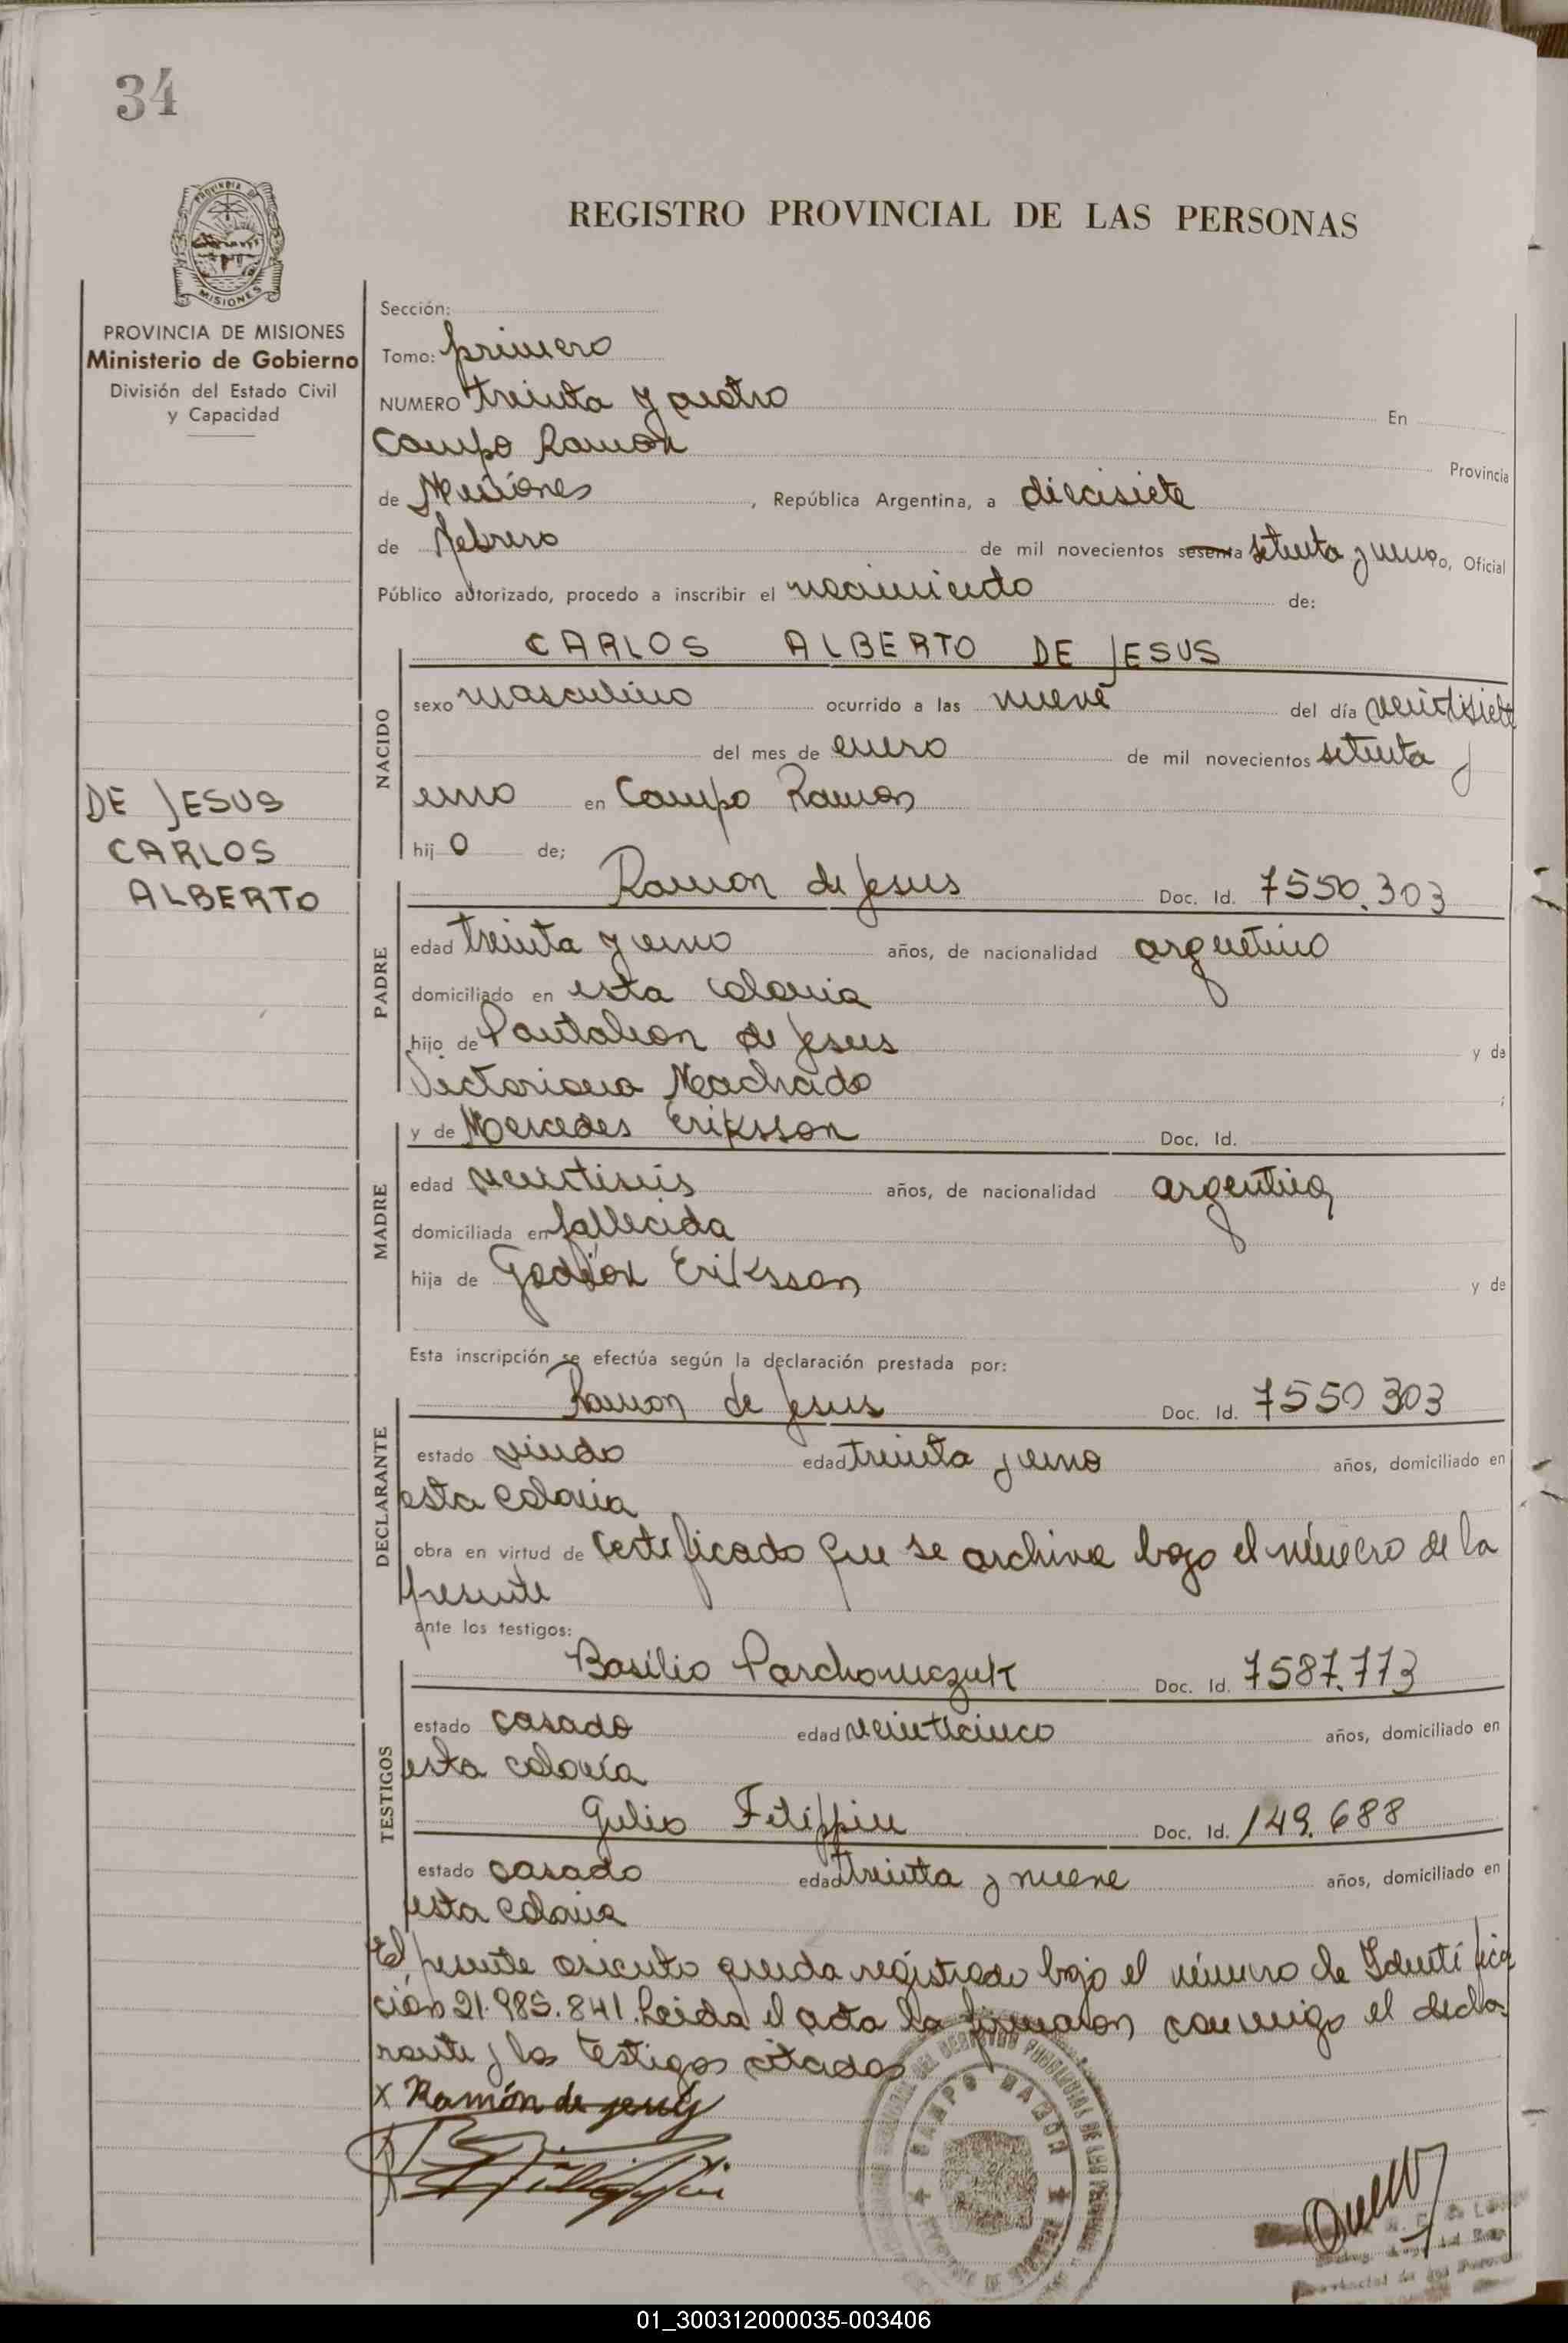 34
REGISTRO PROVINCIAL DE LAS PERSONAS
PROVINCIA DE
MISIONES
PROVINCIA DE MISIONES
Ministerio de Gobierno
División del Estado Civil
y Capacidad
DE JESUS
CARLOS
ALBERTO
Sección:
Tomo: primero
NUMERO treinta y cuatro En
Campo Ramon Provincia
de Misiones, República Argentina, a diecisiete
de febrero de mil novecientos sesenta setenta y uno, Oficial
Público autorizado, procedo a inscribir el nacimiento de:
NACIDO
CARLOS ALBERTO DE JESUS
sexo masculino ocurrido a las nueve del día veintisiete
del mes de enero de mil novecientos setenta y
uno en Campo Ramon
hij o de;
PADRE
Ramon de Jesus Doc. Id. 7550.303
edad treinta y uno años, de nacionalidad argentino
domiciliado en esta colonia
hijo de Pantaleon de Jesus y de
Victoriana Machado;
MADRE
y de Mercedes Eriksson Doc. Id.
edad veintiseis años, de nacionalidad argentina
domiciliada en fallecida
hija de Eriksson y de
Esta inscripción se efectúa según la declaración prestada por:
DECLARANTE
Ramon de Jesus Doc. Id. 7550303
estado viudo edad treinta y uno años, domiciliado en
esta colonia
obra en virtud de certificado que se archiva bajo el número de la
presente
ante los testigos:
TESTIGOS
Basilio Parchomczuk Doc. Id. 7587.773
estado casado edad veinticinco años, domiciliado en
esta colonia
Julio Filippin Doc. Id. 149.688
estado casado edad treinta y nueve años, domiciliado en
esta colonia
El presente asiento queda registrado bajo el número de Identifica
ción 21.985.841. Leida el acta la firmaron conmigo el decla
rante y los testigos citados
X Ramón de jesús
CAMPO RAMON
01_300312000035-003406